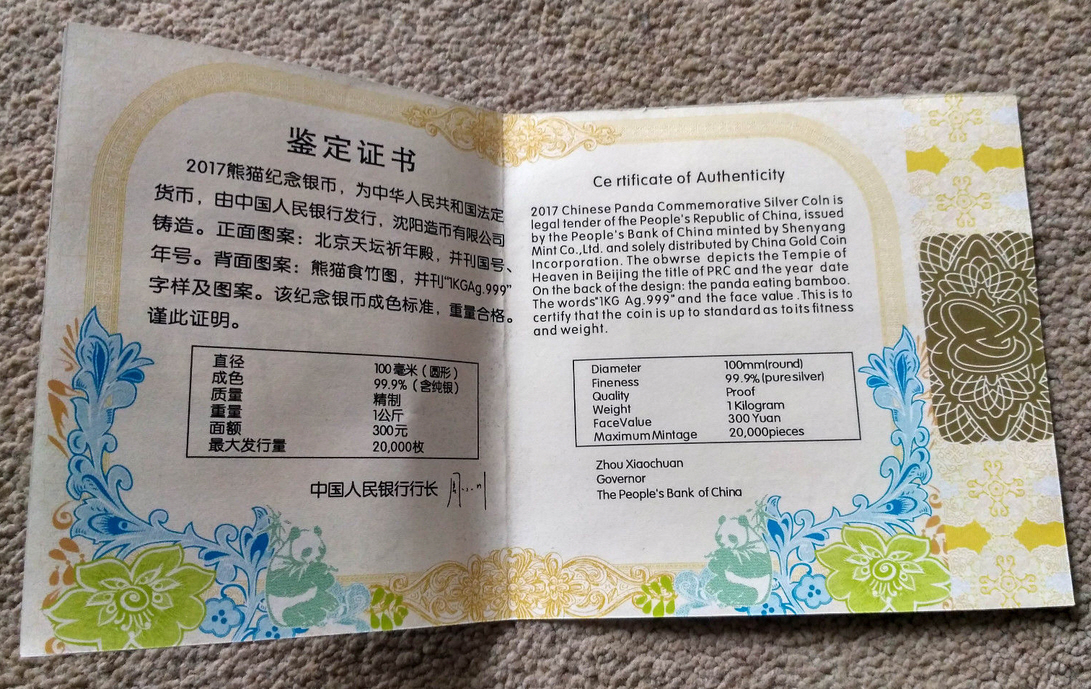 鉴定证书
2017熊猫纪念银币，为中华人民共和国法定
货币，由中国人民银行发行，沈阳造币有限公司
铸造。正面图案：北京天坛祈年殿，并刊国号、
年号。背面图案：熊猫食竹图，并刊"1KGAg.999"
字样及图案。该纪念银币成色标准，重量合格。
谨此证明。
直径 100毫米（圆形）
成色 99.9%（含纯银）
质量 精制
重量 1公斤
面额 300元
最大发行量 20,000枚
中国人民银行行长
Ce rtificate of Authenticity
2017 Chinese Panda Commemorative Silver Coln is
legal tender of the People's Republic of China, issued
by the People's Bank of China minted by Shenyang
Mint Co.,Ltd. and solely distributed by China Gold Coin
Incorporation. The obwrse depicts the Tempie of
Heaven in Beijing the title of PRC and the year date
On the back of the design: the panda eating bamboo.
The words"1KG Ag.999" and the face value .This is to
certify that the coin is up to standard as to its fitness
and weight.
Diameter 100mm(round)
Fineness 99.9%(pure silver)
Quality Proof
Weight 1 Kilogram
FaceValue 300 Yuan
Maximum Mintage 20,000pieces
Zhou Xiaochuan
Governor
The People's Bank of China